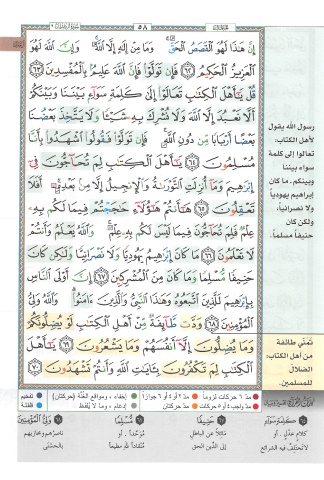 ٥٨
إِنَّ هَٰذَا لَهُوَ ٱلْقَصَصُ ٱلْحَقُّ ۚ وَمَا مِنْ إِلَٰهٍ إِلَّا ٱللَّهُ ۚ وَإِنَّ ٱللَّهَ لَهُوَ
ٱلْعَزِيزُ ٱلْحَكِيمُ ٦٢ فَإِن تَوَلَّوْا۟ فَإِنَّ ٱللَّهَ عَلِيمٌۢ بِٱلْمُفْسِدِينَ ٦٣
قُلْ يَٰٓأَهْلَ ٱلْكِتَٰبِ تَعَالَوْا۟ إِلَىٰ كَلِمَةٍ سَوَآءٍۭ بَيْنَنَا وَبَيْنَكُمْ
أَلَّا نَعْبُدَ إِلَّا ٱللَّهَ وَلَا نُشْرِكَ بِهِۦ شَيْـًٔا وَلَا يَتَّخِذَ بَعْضُنَا
بَعْضًا أَرْبَابًا مِّن دُونِ ٱللَّهِ ۚ فَإِن تَوَلَّوْا۟ فَقُولُوا۟ ٱشْهَدُوا۟ بِأَنَّا
مُسْلِمُونَ ٦٤ يَٰٓأَهْلَ ٱلْكِتَٰبِ لِمَ تُحَآجُّونَ فِىٓ
إِبْرَٰهِيمَ وَمَآ أُنزِلَتِ ٱلتَّوْرَىٰةُ وَٱلْإِنجِيلُ إِلَّا مِنۢ بَعْدِهِۦٓ ۚ أَفَلَا
تَعْقِلُونَ ٦٥ هَٰٓأَنتُمْ هَٰٓؤُلَآءِ حَٰجَجْتُمْ فِيمَا لَكُم بِهِۦ
عِلْمٌ فَلِمَ تُحَآجُّونَ فِيمَا لَيْسَ لَكُم بِهِۦ عِلْمٌ ۚ وَٱللَّهُ يَعْلَمُ وَأَنتُمْ
لَا تَعْلَمُونَ ٦٦ مَا كَانَ إِبْرَٰهِيمُ يَهُودِيًّا وَلَا نَصْرَانِيًّا وَلَٰكِن كَانَ
حَنِيفًا مُّسْلِمًا وَمَا كَانَ مِنَ ٱلْمُشْرِكِينَ ٦٧ إِنَّ أَوْلَى ٱلنَّاسِ
بِإِبْرَٰهِيمَ لَلَّذِينَ ٱتَّبَعُوهُ وَهَٰذَا ٱلنَّبِىُّ وَٱلَّذِينَ ءَامَنُوا۟ ۗ وَٱللَّهُ وَلِىُّ
ٱلْمُؤْمِنِينَ ٦٨ وَدَّت طَّآئِفَةٌ مِّنْ أَهْلِ ٱلْكِتَٰبِ لَوْ يُضِلُّونَكُمْ
وَمَا يُضِلُّونَ إِلَّآ أَنفُسَهُمْ وَمَا يَشْعُرُونَ ٦٩ يَٰٓأَهْلَ
ٱلْكِتَٰبِ لِمَ تَكْفُرُونَ بِـَٔايَٰتِ ٱللَّهِ وَأَنتُمْ تَشْهَدُونَ ٧٠
رسول الله يقول
لأهل الكتاب:
تعالوا إلى كلمة
سواء بيننا
وبينكم. ما كان
إبراهيم يهودياً
ولا نصرانياً،
ولكن كان
حنيفاً مسلماً.
تمني طائفة
من أهل الكتاب:
الضلال
للمسلمين.
مدّ ٦ حركات لزوماً مدّ ٢ أو ٤ أو ٦ جوازاً إخفاء، ومواقع الغُنَّة (حركتان) تفخيم
مدّ واجب ٤ أو ٥ حركات مدّ حركتان إدغام، وما لا يُلفظ قلقلة
٦٤ كَلِمَةٍ سَوَآءٍ
كلام عدل، أو
لا تختلف فيه الشرائع
٦٧ حَنِيفًا
مائلاً عن الباطل
إلى الدين الحق
مُّسْلِمًا
موحّداً. أو
منقاداً لله مطيعاً
٦٨ وَلِىُّ ٱلْمُؤْمِنِينَ
ناصرهم ومجازيهم
بالحسنى